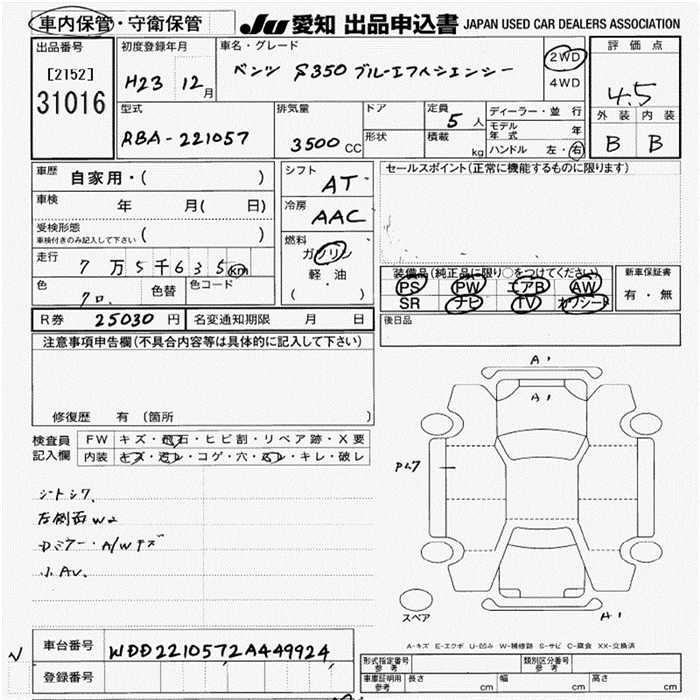 車内保管・守衛保管
JU 愛知 出品申込書 JAPAN USED CAR DEALERS ASSOCIATION
出品番号
[2152]
31016
初度登録年月
H23 12月
車名・グレード
ベンツ S350 ブルーエフィシェンシー
2WD
4WD
評価点
4.5
外装 内装
B B
型式
RBA-221057
排気量
3500 CC
ドア
形状
定員
5 人
積載
kg
ディーラー・並行
モデル年式 年
ハンドル 左・右
車歴
自家用・( )
車検
年 月( 日)
受検形態
車検付きのみ記入して下さい ( )
走行
7万5千635km
色
クロ、
色替
色コード
シフト
AT
冷房
AAC
燃料
ガソリン
軽・油
( )
セールスポイント(正常に機能するものに限ります)
装備品(純正品に限り○をつけてください)
PS PW エアB AW
SR ナビ TV カワシート
新車保証書
有・無
R券 25030 円 名変通知期限 月 日
後日品
注意事項申告欄(不具合内容等は具体的に記入して下さい)
修復歴 有 (箇所
検査員記入欄
FW キズ・飛石・ヒビ割・リペア跡・X要
内装 キズ・汚レ・コゲ・穴・スレ・キレ・破レ
シートシワ、
左側面W2
Dミラー・A/Wキズ
小AU、
A1
A1
A1
スペア
A-キズ E-エクボ U-凹み W-補修跡 S-サビ C-腐食 XX-交換済
車台番号 WDD2210572A449924
登録番号
型式指定番号 参考
類別区分番号 参考
車庫証明用 参考
長さ cm 幅 cm 高さ cm